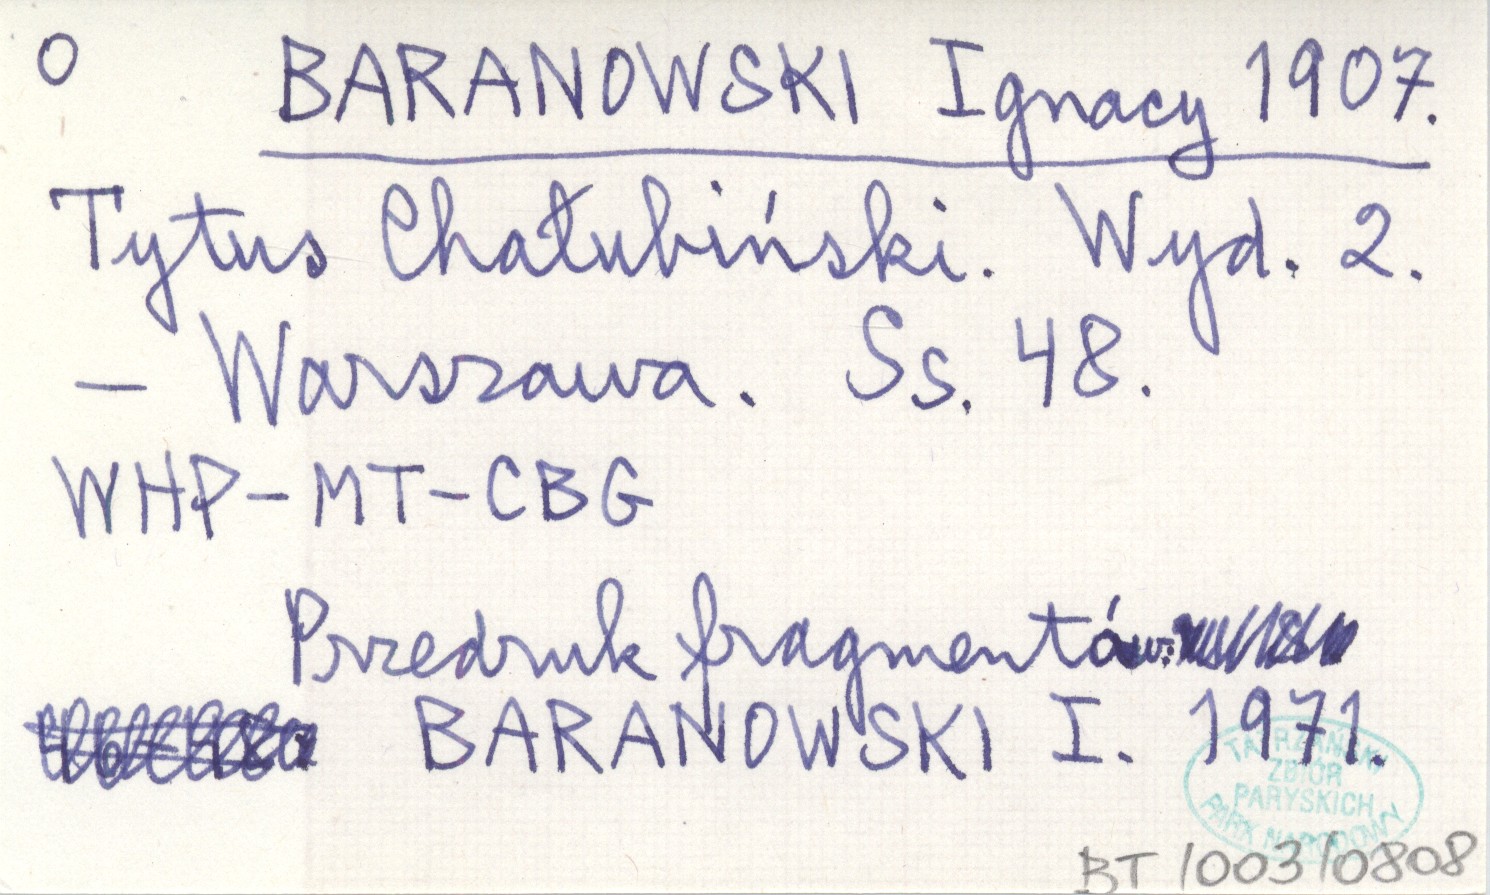 O BARANOWSKI Ignacy 1907.
Tytus Chałubiński. Wyd. 2.
– Warszawa. Ss. 48.
WHP–MT–CBG
Przedruk fragmentów:
BARANOWSKI I. 1971.
TATRZAŃSKI
ZBIÓR
PARYSKICH
PARK NARODOWY
BT/003/0808